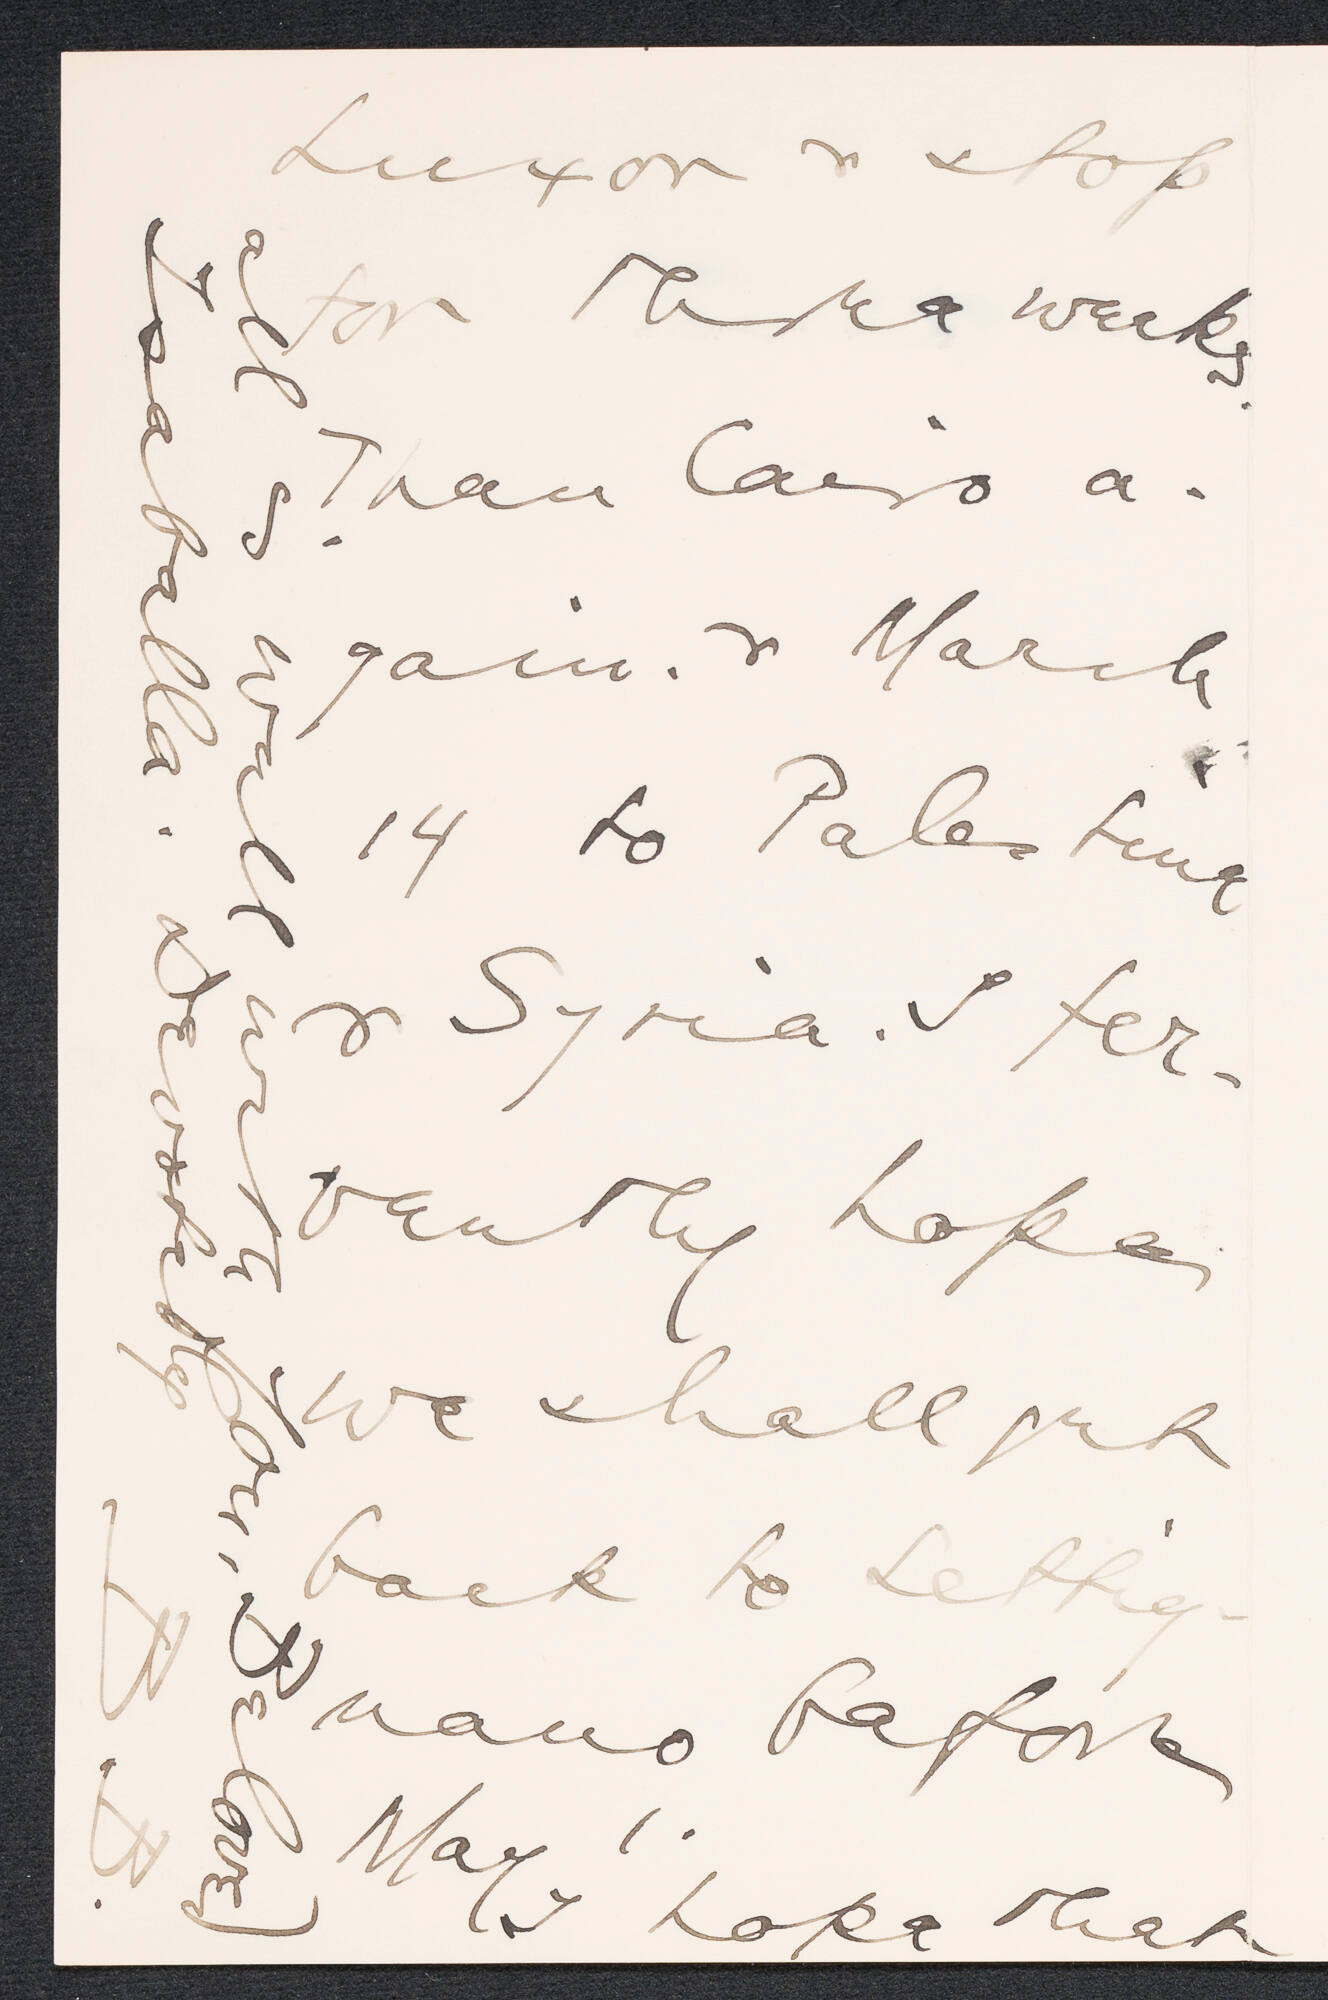 Luxor & stop
for three weeks.
Then Cairo a-
gain. & March
14 to Palestine
& Syria. I fer-
vently hope
we shall get
back to Settig-
nano before
May 1.
I hope that
all is well with
you, Beloved
Isabella. Devotedly
B. B.